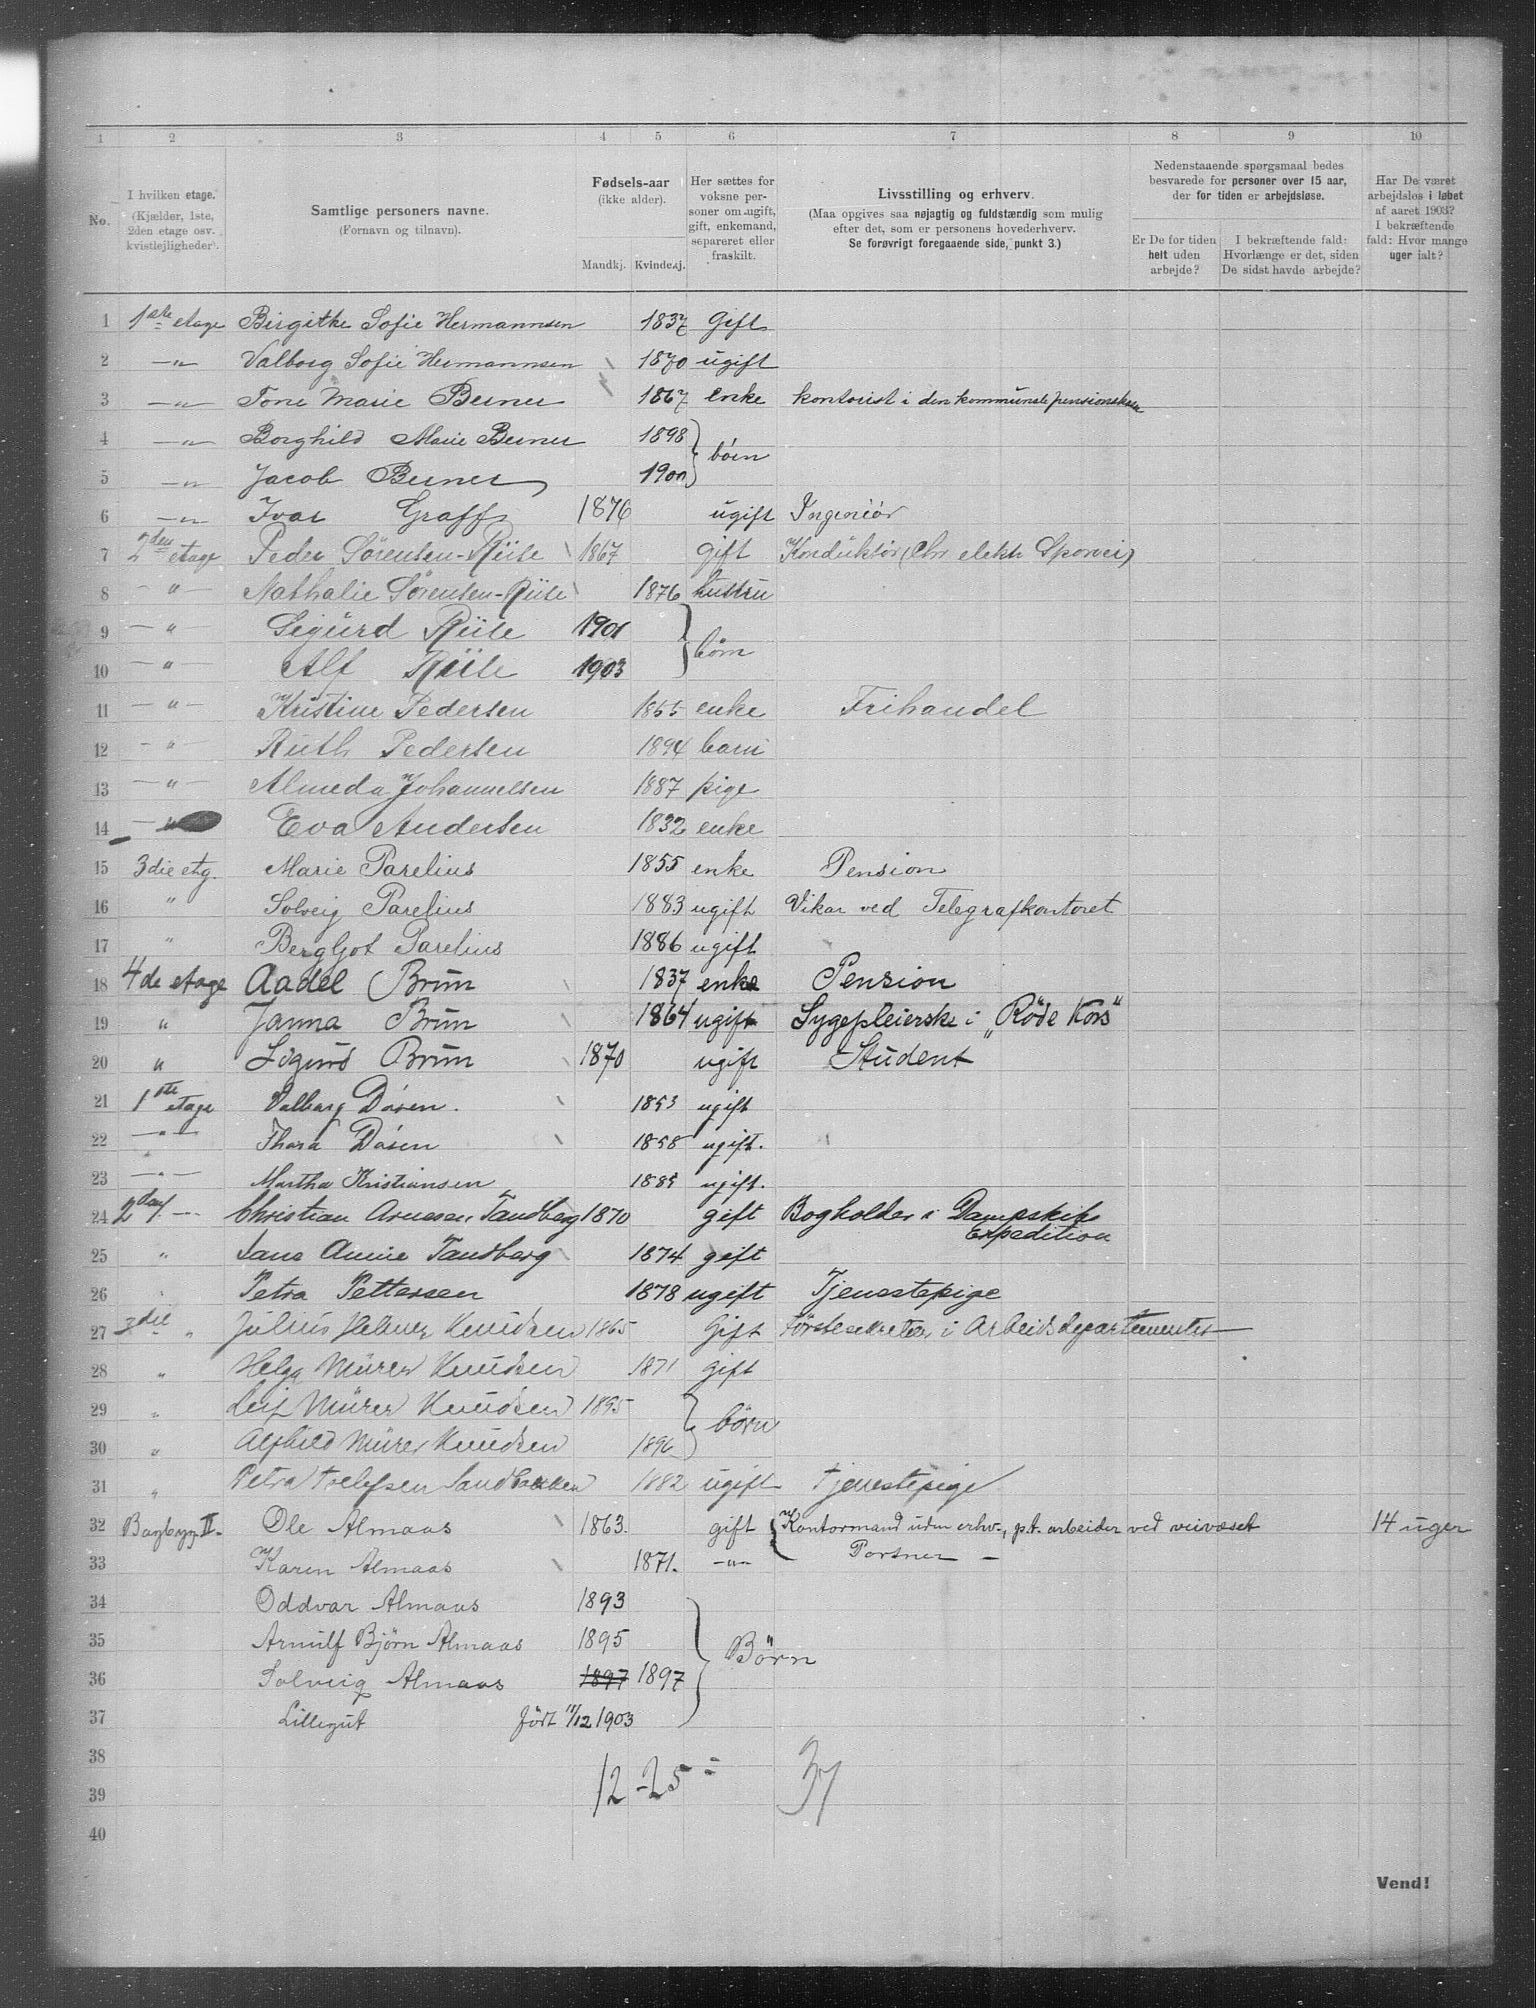 1 2 3 4 5 6 7 8 9 10
No.
I hvilken etage. (Kjælder, 1ste, 2den etage osv. kvistlejligheder).
Samtlige personers navne. (Fornavn og tilnavn).
Fødsels-aar (ikke alder). Mandkj. Kvindekj.
Her sættes for voksne personer om ugift, gift, enkemand, separeret eller fraskilt.
Livsstilling og erhverv. (Maa opgives saa nøjagtig og fuldstændig som mulig efter det, som er personens hovederhverv. Se forøvrigt foregaaende side, punkt 3.)
Nedenstaaende spørgsmaal bedes besvarede for personer over 15 aar, der for tiden er arbejdsløse.
Er De for tiden helt uden arbejde?
I bekræftende fald: Hvorlænge er det, siden De sidst havde arbejde?
Har De været arbejdsløs i løbet af aaret 1903? I bekræftende fald: Hvor mange uger ialt?
1 1ste etage Birgitte Sofie Hermannsen 1837 Gift
2 —„— Valborg Sofie Hermannsen 1870 ugift
3 —„— Tone Marie Berner 1867 enke kontorist i den kommunale pensionskasse
4 —„— Borghild Marie Berner 1898
5 —„— Jacob Berner 1900 børn
6 —„— Ivar Graff 1876 ugift Ingeniör
7 2den etage Peder Sørensen-Riise 1867 gift Konduktør (Chr elektr Sporvei)
8 —„— Nathalie Sørensen-Riise 1876 hustru
9 —„— Sigurd Riise 1901
10 —„— Alf Riise 1903 børn
11 —„— Kristine Pedersen 1855 enke Frihandel
12 —„— Ruth Pedersen 1894 barn
13 —„— Almeda Johannessen 1887 pige
14 —„— Eva Andersen 1832 enke
15 3die etg. Marie Parelius 1855 enke Pension
16 „ Solveig Parelius 1883 ugift Vikar ved Telegrafkontoret
17 „ Bergljot Parelius 1886 ugift
18 4de etage Aadel Brun 1837 enke Pension
19 „ Janna Brun 1864 ugift Sygepleierske i „Røde Kors"
20 „ Sigurd Brun 1870 ugift Student
21 1ste etage Valborg Døsen. 1853 ugift
22 —„— Thora Døsen 1858 ugift.
23 —„— Martha Kristiansen 1885 ugift.
24 2den — Christian Arnesen Tandberg 1870 gift Bogholder i Dampskibs Expedition
25 „ Jana Annie Tandberg 1874 gift
26 „ Petra Pettersen 1878 ugift Tjenestepige
27 3die „ Julius Helmer Knudsen 1865 Gift Førstesekretær i Arbeidsdepartementet
28 „ Helga Mürer Knudsen 1871 gift
29 „ Leif Mürer Knudsen 1895
30 „ Alfhild Mürer Knudsen 1896 børn
31 „ Petra Tollefsen Sandbakken 1882 ugift Tjenestepige
32 Bagbygg II. Ole Almaas 1863. gift Kontormand uden erhv., p.t. arbeider ved veivæset 14 uger
33 Karen Almaas 1871. —„— Portner —
34 Oddvar Almaas 1893
35 Arnulf Bjørn Almaas 1895
36 Solveig Almaas 1897 1897 Børn
37 Lillegut født 11/12 1903
38
39 12 - 25 = 37
40
Vend!